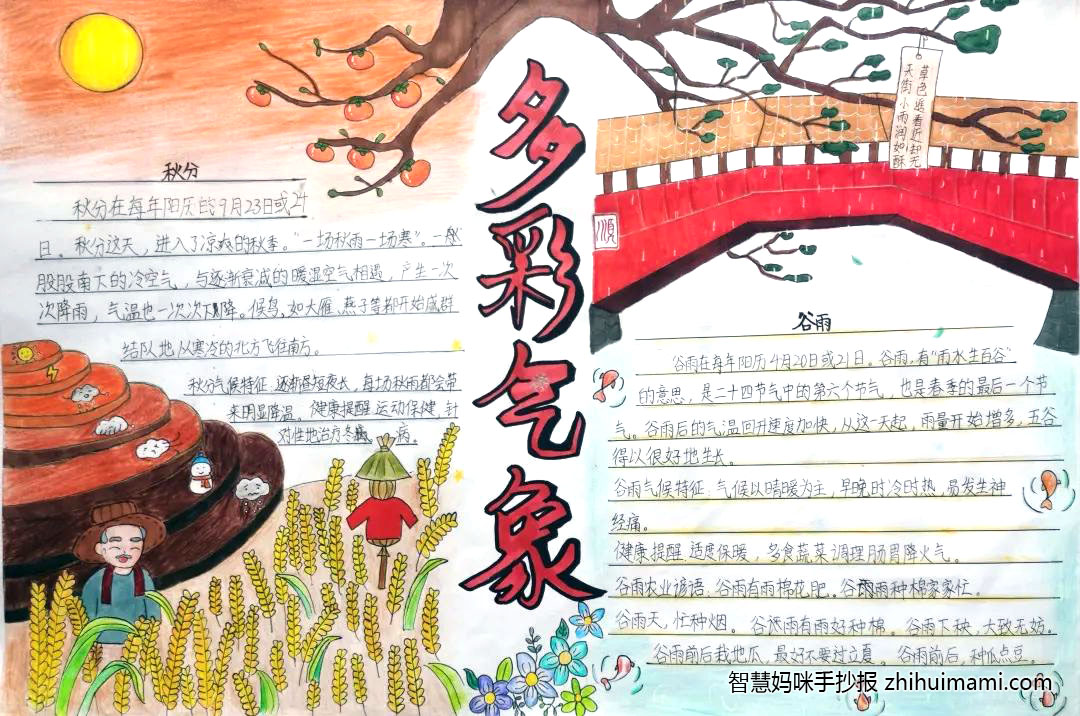 多彩气象
秋分
秋分在每年阳历的9月23日或24
日。秋分这天，进入了凉爽的秋季。"一场秋雨一场寒"。一般
股股南下的冷空气，与逐渐衰减的暖湿空气相遇，产生一次
次降雨，气温也一次次下降。候鸟，如大雁、燕子等都开始成群
结队地从寒冷的北方飞往南方。
秋分气候特征：逐渐昼短夜长，每场秋雨都会带
来明显降温。健康提醒：运动保健，针
对性地治疗冬 病。
草色遥看近却无
天街小雨润如酥
顺
谷雨
谷雨在每年阳历4月20日或21日。谷雨，有"雨水生百谷"
的意思，是二十四节气中的第六个节气，也是春季的最后一个节
气。谷雨后的气温回升速度加快，从这一天起，雨量开始增多，五谷
得以很好地生长。
谷雨气候特征：气候以晴暖为主，早晚时冷时热，易发生神
经痛。
健康提醒：适度保暖，多食蔬菜调理肠胃降火气。
谷雨农业谚语：谷雨有雨棉花肥。谷雨雨种棉家家忙。
谷雨天，忙种烟。谷 雨有雨好种棉。谷雨下秧，大致无妨。
谷雨前后栽地瓜，最好不要过立夏。谷雨前后，种瓜点豆。
智慧妈咪手抄报 zhihuimami.com